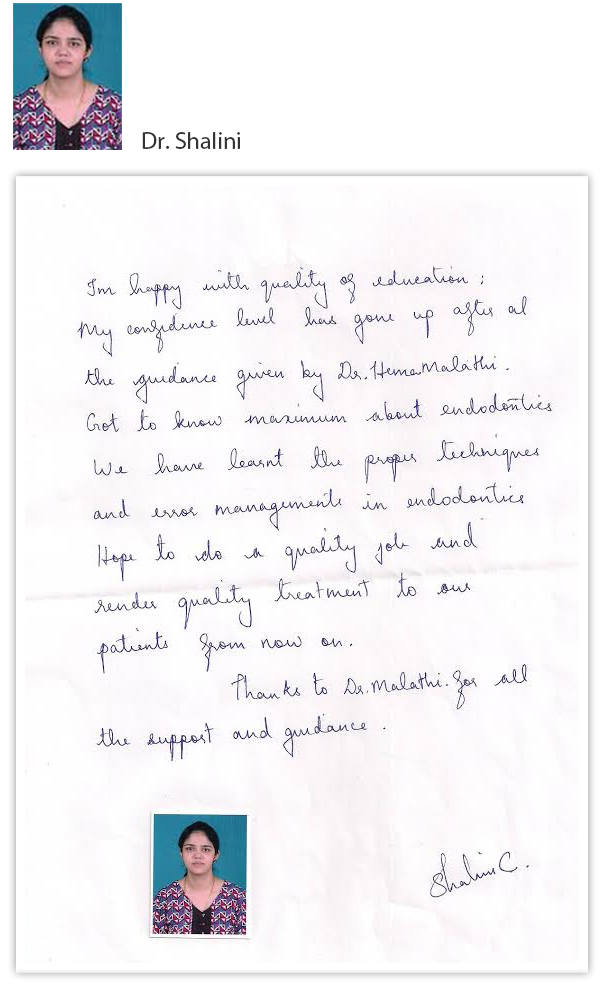 Dr. Shalini
I'm happy with quality of education ;
My confidence level has gone up after al
the guidance given by Dr. HemaMalathi.
Got to know maximum about endodontics
We have learnt the proper techniques
and error managements in endodontics
Hope to do a quality job and
render quality treatment to our
patients from now on.
Thanks to Dr. Malathi. for all
the support and guidance .
Shalini C.